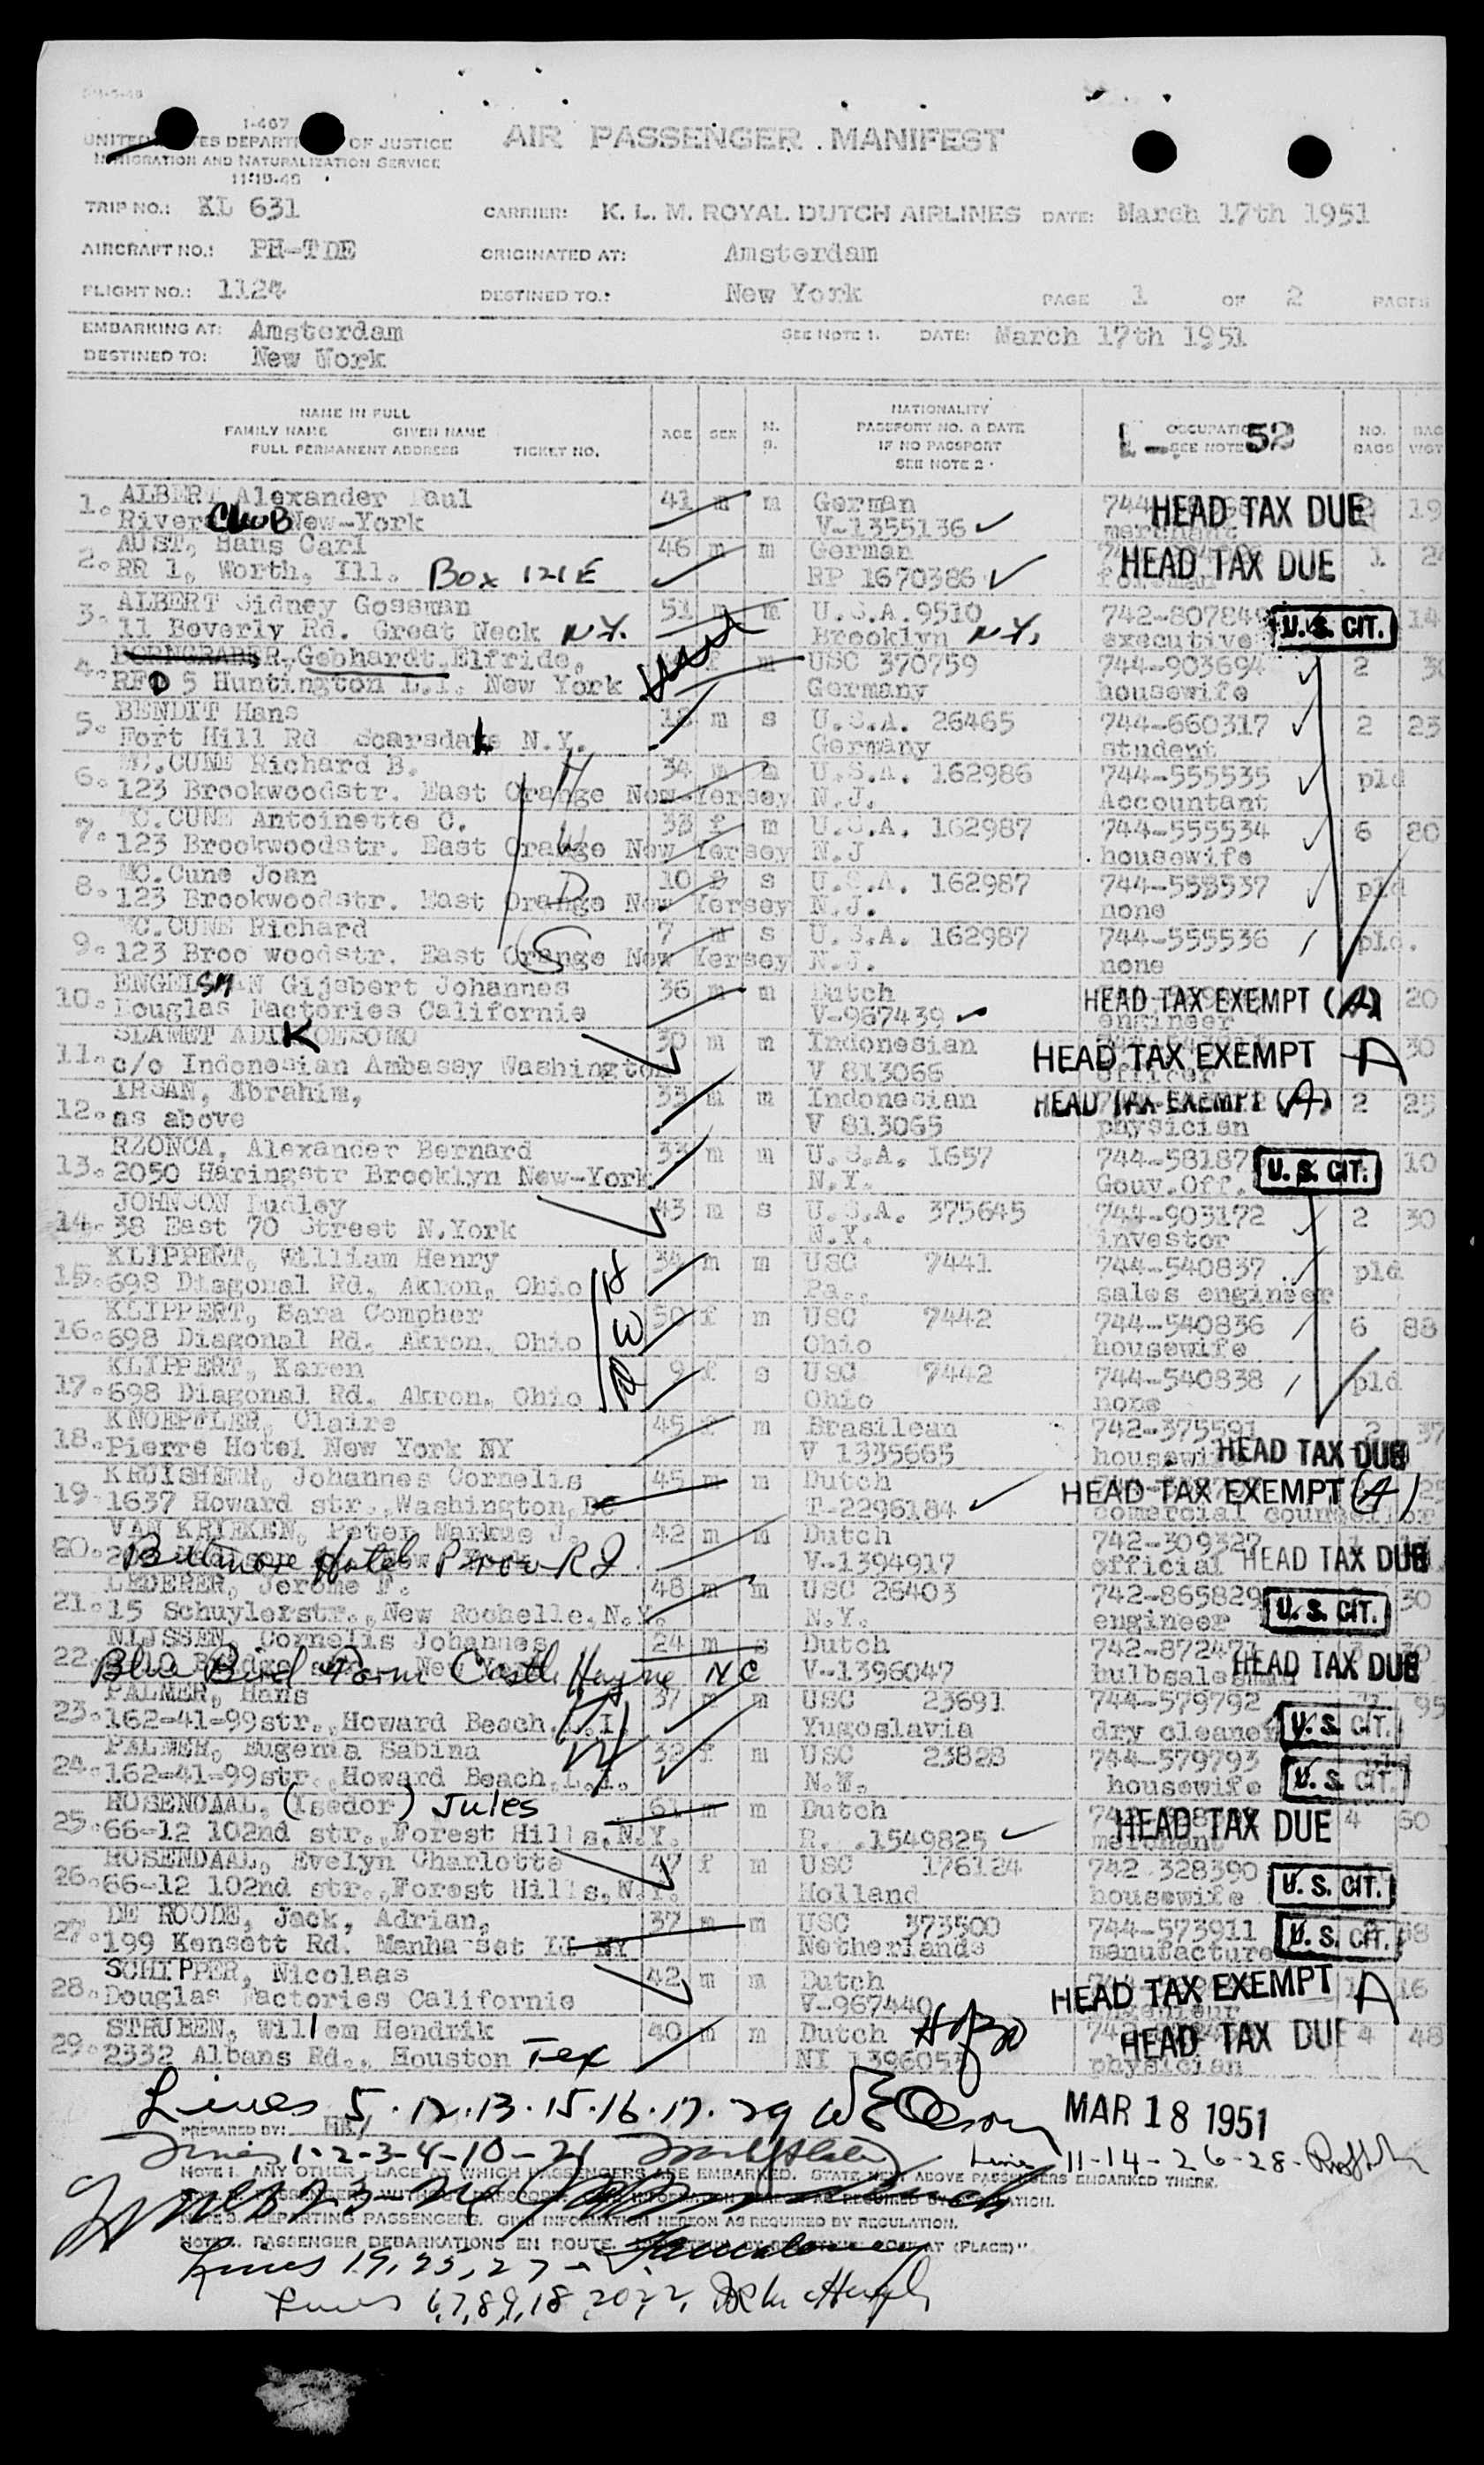 I-407
UNITED STATES DEPARTMENT OF JUSTICE
IMMIGRATION AND NATURALIZATION SERVICE
11-15-45
AIR PASSENGER MANIFEST
TRIP NO.: KL 631 CARRIER: K. L. M. ROYAL DUTCH AIRLINES DATE: March 17th 1951
AIRCRAFT NO.: PH-TDE ORIGINATED AT: Amsterdam
FLIGHT NO.: 1124 DESTINED TO.: New York PAGE 1 OF 2 PAGES
EMBARKING AT: Amsterdam SEE NOTE 1. DATE: March 17th 1951
DESTINED TO: New York
NAME IN FULL
FAMILY NAME GIVEN NAME
FULL PERMANENT ADDRESS TICKET NO.
AGE SEX M. S.
NATIONALITY
PASSPORT NO. & DATE
IF NO PASSPORT
SEE NOTE 2.
OCCUPATION
SEE NOTE 52
NO. BAGS BAG WGT
1. ALBERT Alexander Paul 41 m m German HEAD TAX DUE 19
River CLUB New-York V-1355136 merchant
2. AUST, Hans Carl 46 m m German HEAD TAX DUE 1
RR 1, Worth, Ill. Box 121E RP 1670386
3. ALBERT Sidney Gossman 51 m m U.S.A. 9510 742-807849 U.S. CIT. 14
11 Beverly Rd. Great Neck N.Y. Brooklyn N.Y. executive
4. Gebhardt, Elfride, f m USC 370759 744-903694 2
RFD 5 Huntington L.I. New York Germany housewife
5. BENDIT Hans m s U.S.A. 26465 744-660317 2 23
Fort Hill Rd Scarsdale N.Y. Germany student
6. MC.CUNE Richard B. H 34 m m U.S.A. 162986 744-555535 pld
123 Brookwoodstr. East Orange New Yersey N.J. Accountant
7. MC.CUNE Antoinette C. W 33 f m U.S.A. 162987 744-555534 6 80
123 Brookwoodstr. East Orange New Yersey N.J housewife
8. MC.Cune Joan D 10 f s U.S.A. 162987 744-555537 pld
123 Brookwoodstr. East Orange New Yersey N.J. none
9. MC.CUNE Richard S 7 m s U.S.A. 162987 744-555536 pld.
123 Broo woodstr. East Orange New Yersey N.J. none
10. ENGELSMAN Gijsbert Johannes 36 m m Dutch HEAD TAX EXEMPT (A) 20
Douglas Factories Californie V-967439 engineer
11. SLAMET ADIKOESOMO 30 m m Indonesian HEAD TAX EXEMPT A 30
c/o Indonesian Ambassy Washington V 813066 officer
12. IRSAN, Ebrahim, 33 m m Indonesian HEAD TAX EXEMPT (A) 2 25
as above V 813065 physician
13. RZONCA, Alexander Bernard 33 m m U.S.A. 1657 744-58187 U.S. CIT. 10
2050 Haringstr Brooklyn New-York N.Y. Gouv.Off.
14. JOHNSON Dudley 43 m s U.S.A. 375645 744-903172 2 30
38 East 70 Street N.York N.Y. investor
15. KLIPPERT, William Henry H 34 m m USC 7441 744-540837 pld
698 Diagonal Rd, Akron, Ohio Pa.. sales engineer
16. KLIPPERT, Sara Compher W 30 f m USC 7442 744-540836 6 88
698 Diagonal Rd, Akron, Ohio Ohio housewife
17. KLIPPERT, Karen D 9 f s USC 7442 744-540838 pld
698 Diagonal Rd, Akron, Ohio Ohio none
18. KNOEPFLER, Claire 45 f m Brasilean 742-375591 2 37
Pierre Hotel New York NY V 1335665 housewife HEAD TAX DUE
19. KRUISHEER, Johannes Cornelis 45 m m Dutch HEAD TAX EXEMPT (A) 25
1637 Howard str., Washington, DC T-2296184 comercial counsellor
20. VAN KRIEKEN, Peter Markus J. 42 m m Dutch 742-309327
Biltmore Hotel Prov RI V-1394917 official HEAD TAX DUE
21. LEDERER, Jerome F. 48 m m USC 26403 742-865829 U.S. CIT. 30
15 Schuylerstr., New Rochelle, N.Y. N.Y. engineer
22. NIJSSEN, Cornelis Johannes 24 m s Dutch 742-872471
Blue Bird Farm Castle Hayne NC V-1396047 bulbsalesman HEAD TAX DUE
23. PALMER, Hans H 37 m m USC 23691 744-579792 95
162-41-99str., Howard Beach, L.I. Yugoslavia dry cleaner U.S. CIT.
24. PALMER, Eugenia Sabina W 32 f m USC 23823 744-579793
162-41-99str., Howard Beach, L.I. N.Y. housewife U.S. CIT.
25. ROSENDAAL, (Isedor) Jules 61 m m Dutch HEAD TAX DUE 4 60
66-12 102nd str., Forest Hills, N.Y. R. .1549825 merchant
26. ROSENDAAL, Evelyn Charlotte 47 f m USC 176124 742 328390
66-12 102nd str., Forest Hills, N.Y. Holland housewife U.S. CIT.
27. DE ROODE, Jack, Adrian, 37 m m USC 373500 744-573911 U.S. CIT.
199 Kensett Rd. Manhasset LI NY Netherlands manufacture
28. SCHIPPER, Nicolaas 42 m m Dutch HEAD TAX EXEMPT A 16
Douglas Factories Californie V-967440
29. STRUBEN, Willem Hendrik 40 m m Dutch HEAD TAX DUE 4 48
2332 Albans Rd., Houston Tex NI 139605 physician
Lines 5.12.13.15.16.17.29 MAR 18 1951
PREPARED BY:
Lines 1-2-3-4-10-21 Lines 11-14-26-28-
NOTE 1. ANY OTHER PLACE AT WHICH PASSENGERS ARE EMBARKED. STATE NEXT ABOVE PASSENGERS EMBARKED THERE.
Lines 23-24
DEPARTING PASSENGERS. GIVE INFORMATION HEREON AS REQUIRED BY REGULATION.
PASSENGER DEBARKATIONS EN ROUTE. AT (PLACE)".
Lines 19, 25, 27
Lines 6,7,8,9,18,20,22,